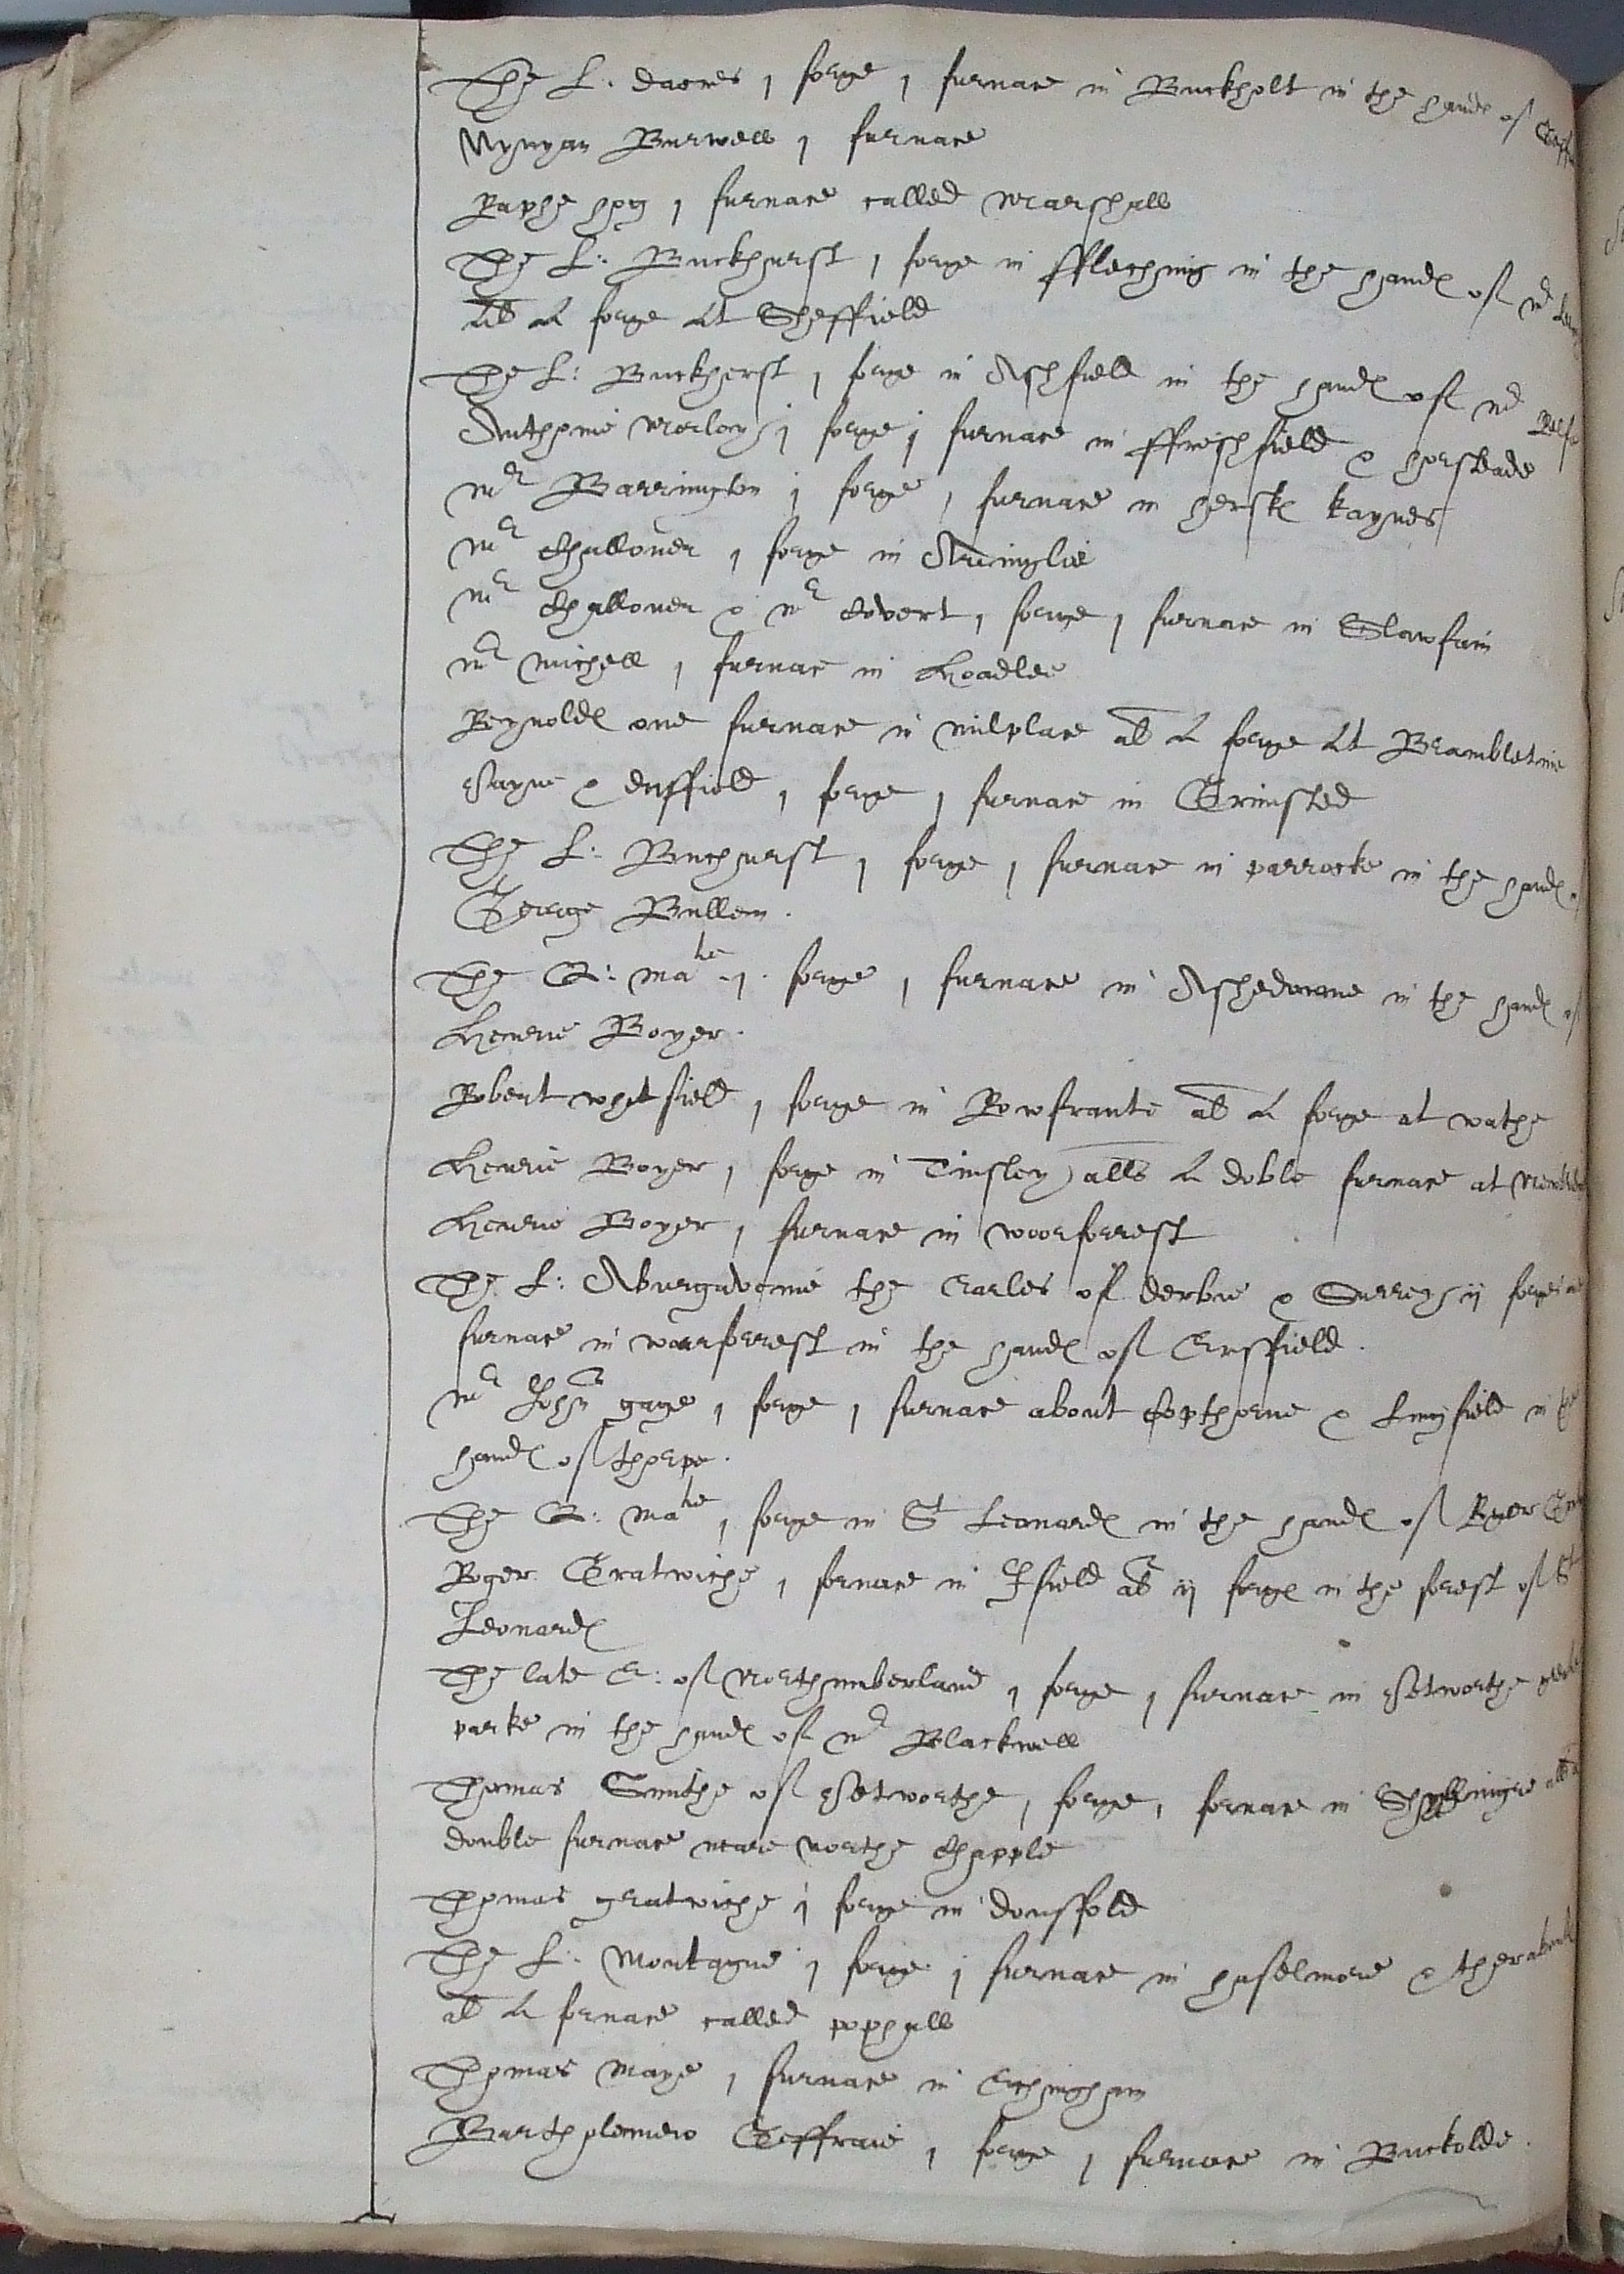 The L. dacres 1 forge 1 furnace in Buckholt in the handℯ of
Nynyan Burwell 1 furnace
Raphe hog 1 furnace called Marshall
The L: Buckhurst 1 forge in fflechinig in the handℯ of mr
als A forge At Sheffield
The L: Buckherst 1 forge in Ashfield in the handℯ of mr
Anthonie Morley j forge j furnace in ffreshfield & horsteade
mr Barrington j forge 1 furnace in herstℯ kaynes
mr Challoner 1 forge in Ardinglie
mr Challoner & mr Covert 1 forge 1 furnace in Slawfain
mr michell 1 furnac in Hoadlee
Reynoldℯ one furnace in milplace als A forge At Brambletine
Payne & duffield 1 forge 1 furnace in Grinsted
The L: Buchurst 1 forge 1 furnace in parrocke in the handℯ
George Bullen.
The Q: matie .1. forge 1 furnace in Ashedowne in the handℯ of
Henrie Boyer.
Robert whitfield 1 forge in Rowfrante als A forge at wathe
Henrie Boyer 1 forge in Tinsley alls A doble furnace at
Henrie Boyer 1 furnace in woorforrest
The L: Aburgavenie the Earles of derbie & Surrey ij forges
furnace in warforrest in the handℯ of Erffield.
mr John gage 1 forge 1 furnace about Copthorne & Lingfield in the
handℯ of thorpe.
The Q: matie 1 forge in St Leonardℯ in the handℯ of Roger
Roger Gratwiche 1 fornace in Ifield als ij forgℯ in the forest of St
Leonardℯ
The late E: of Northumberland 1 forge 1 furnace in Petworthe
parke in the handℯ of mr Blackwell
Thomas Smithe of Petworthe 1 forge 1 fornace in
double furnace neare Northe Chapple
Thomas gratwiche j forge in dousfold
The L: Montague j forge j furnace in haselmore & therabout
als A fornace called pophall
Thomas Maye 1 furnace in Echingham
Bartholemew Geffraie 1 forge 1 furnace in Buckolde.